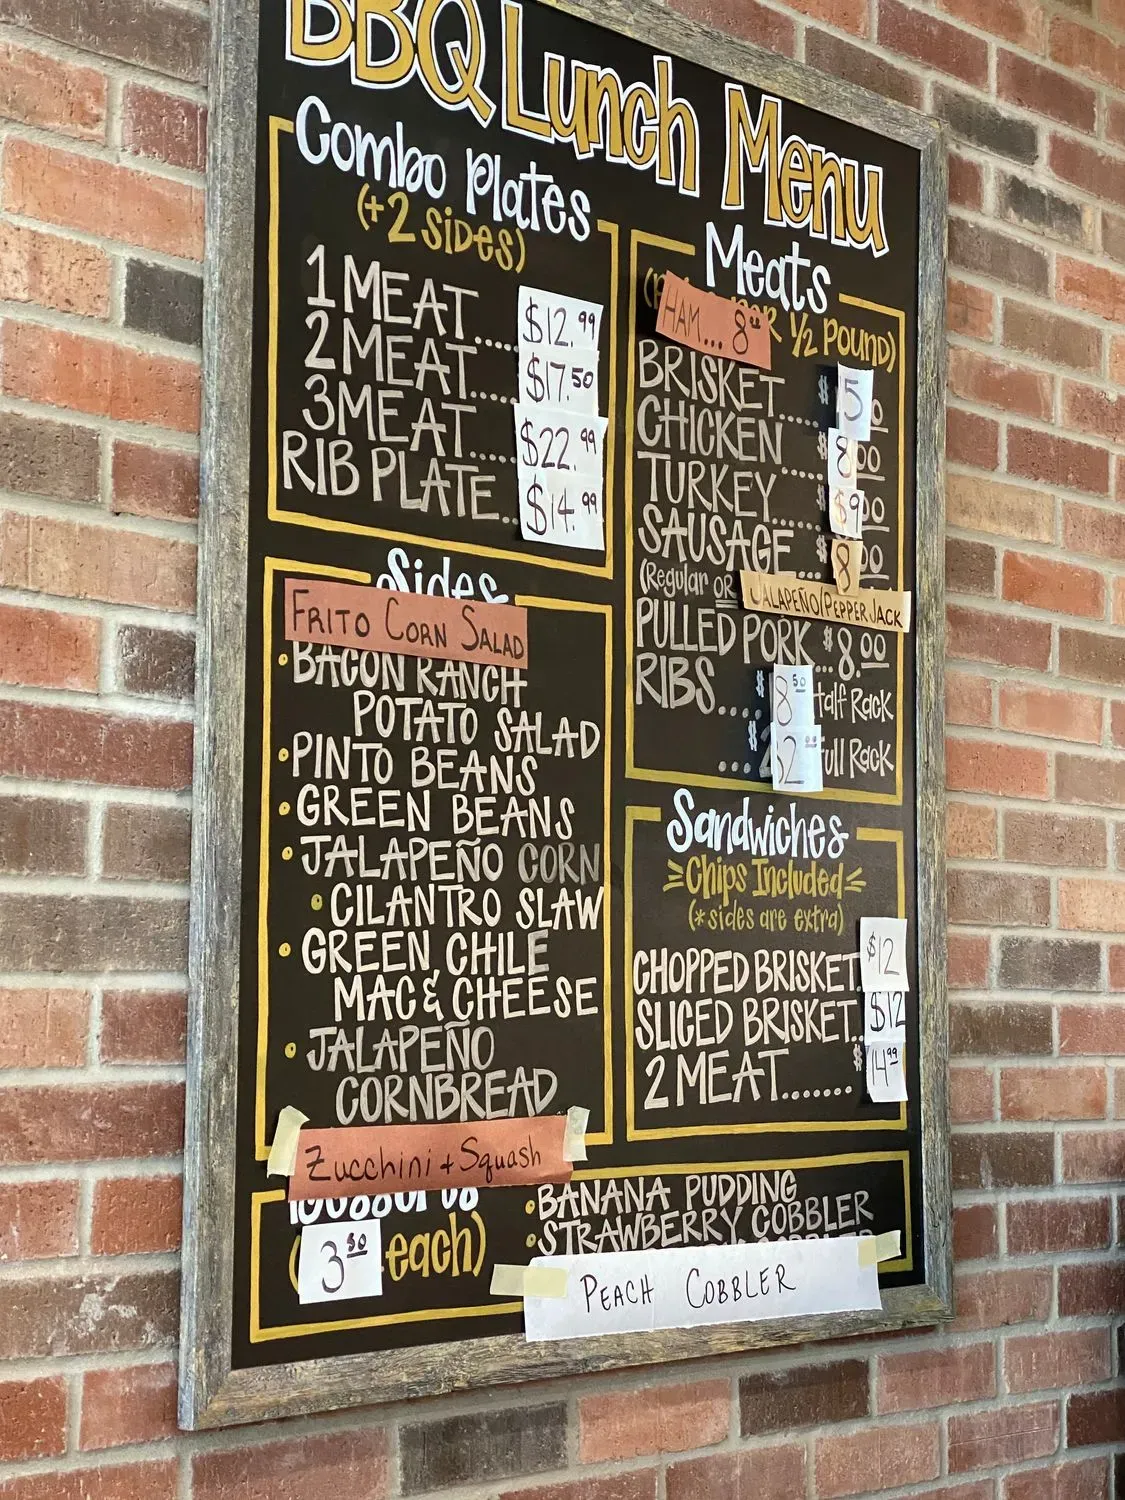 BBQ Lunch Menu
Combo Plates
(+2 SIDES)
1 MEAT..... $12.99
2 MEAT.... $17.50
3 MEAT.... $22.99
RIB PLATE.. $14.99
Sides
FRITO CORN SALAD
• BACON RANCH
POTATO SALAD
• PINTO BEANS
• GREEN BEANS
• JALAPEÑO CORN
• CILANTRO SLAW
• GREEN CHILE
MAC & CHEESE
• JALAPEÑO
CORNBREAD
ZUCCHINI + SQUASH
3.50 each)
Meats
1/2 POUND)
HAM... 8
BRISKET.... $ 5
CHICKEN.... $ 8
TURKEY..... $9
SAUSAGE... $ 8
(Regular OR JALAPEÑO/PEPPER JACK
PULLED PORK... $8.00
RIBS.... $ 8.50 Half Rack
.... $ Full Rack
Sandwiches
Chips Included
(*sides are extra)
CHOPPED BRISKET. $12
SLICED BRISKET.. $12
2 MEAT....... $14.99
• BANANA PUDDING
• STRAWBERRY COBBLER
PEACH COBBLER